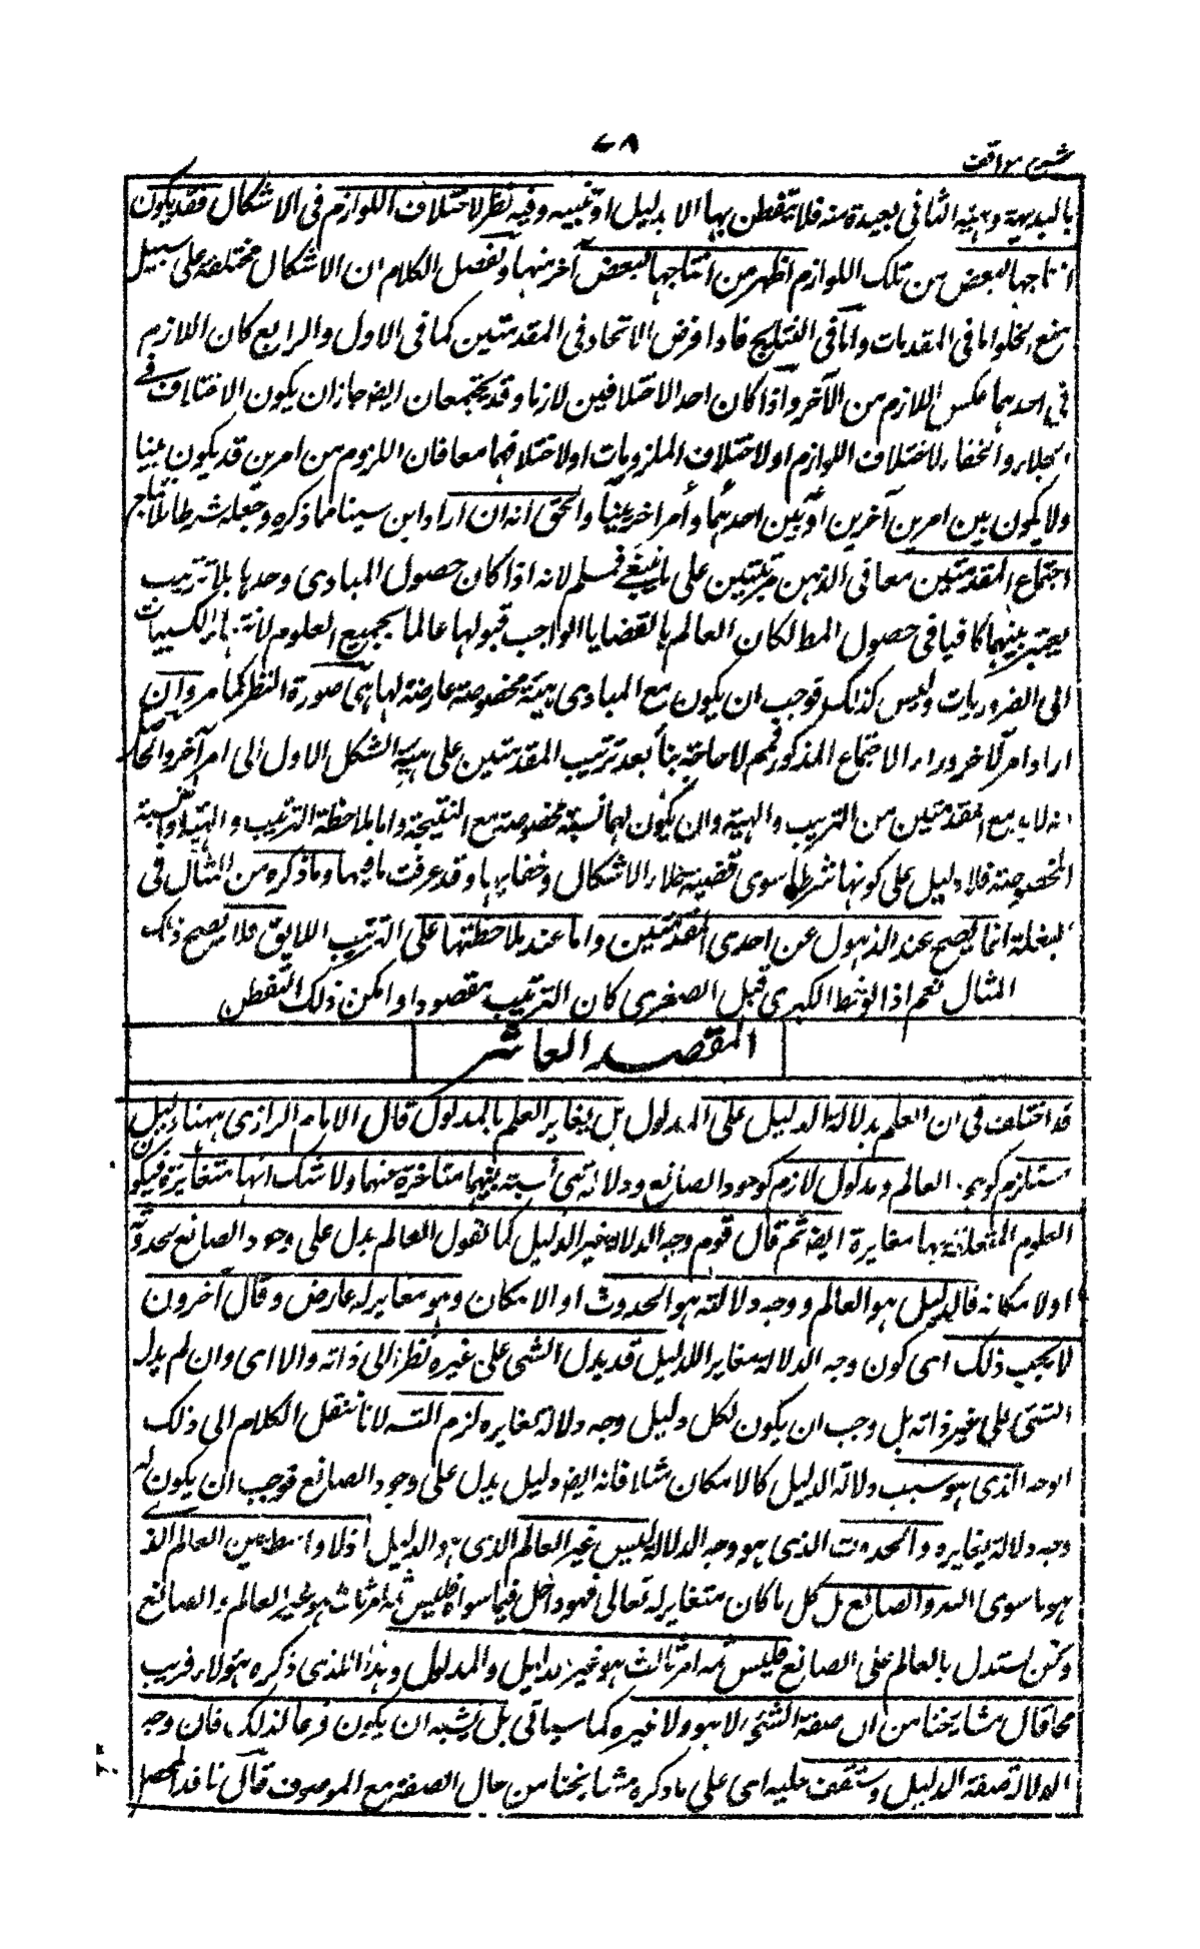 شرح مواقف
٧٨
بالبديهية وهيئة الثانى بعيدة منه فلا يتفطن بها الا بدليل او تنبيه وفيه نظر لاختلاف اللوازم فى الاشكال فقد يكون
انتاجها لبعض من تلك اللوازم اظهر من انتاجها لبعض آخر منها وتفصل الكلام ان الاشكال مختلفة على سبيل
منع الخلو اما فى المقدمات واما فى النتايج فاذا فرض الاتحاد فى المقدمتين كما فى الاول والرابع كان اللازم
فى احدهما عكس اللازم من الآخر واذا كان احد الاختلافين لازما وقد يجتمعان ايضا جاز ان يكون الاختلاف فى
الجلاء والخفاء لاختلاف اللوازم او لاختلاف الملزومات او لاختلافهما معا فان اللزوم من امرين قد يكون بينا
ولا يكون بين امرين آخرين او بين احدهما وأمر اخر بينا والحق انه ان اراد ابن سينا مما ذكره وجعله شرطا للانتاج
اجتماع المقدمتين معا فى الذهن مرتبتين على ما ينبغى فمسلم لانه اذا كان حصول المبادى وحدها بلا ترتيب
يعتبر بينهما كافيا فى حصول المط لكان العالم بالقضايا الواجب قبولها عالما بجميع العلوم لانتهاء الكسبيات
الى الضروريات وليس كذلك فوجب ان يكون مع المبادى هيئة مخصوصة عارضة لها هى صورة النظر كما مر وان
اراد امرا آخر وراء الاجتماع المذكور فمم لا حاجة بنا بعد ترتيب المقدمتين على هيئة الشكل الاول الى امر آخر والحاصل
انه لابد مع المقدمتين من الترتيب والهيئة وان يكون لهما نسبة مخصوصة مع النتيجة واما ملاحظة الترتيب والهيئة والنسبة
المخصوصة فلا دليل على كونها شرطا سوى قضية جلاء الاشكال وخفايها وقد عرفت ما فيها وما ذكره من المثال فى
البغلة انما يصح عند الذهول عن احدى المقدمتين واما عند ملاحظتها على الترتيب اللايق فلا يصح ذلك
المثال نعم اذا لوحظ الكبرى قبل الصغرى كان الترتيب مقصودا وامكن ذلك التفطن
المقصد العاشر
قد اختلف فى ان العلم بدلالة الدليل على المدلول بل يغاير العلم بالمدلول قال الامام الرازى ههنا دليل
مستلزم كوجود العالم ومدلول لازم كوجود الصانع ودلالة هى نسبة بينهما متاخرة عنهما ولا شك انها متغايرة فيكون
العلوم المتعلقة بها مغايرة ايضا ثم قال قوم وجه الدلالة غير الدليل كما نقول العالم يدل على وجود الصانع لحدوثه
او لامكانه فالدليل هو العالم ووجه دلالته هو الحدوث او الامكان وهو مغاير له عارض وقال آخرون
لا يجب ذلك اى كون وجه الدلالة مغايرا للدليل قد يدل الشى على غيره نظرا الى ذاته والا اى وان لم يدل
الشى على غيره لذاته بل وجب ان يكون لكل دليل وجه دلالة تغايره لزم التسه لانا ننقل الكلام الى ذلك
الوجه الذى هو سبب دلالة الدليل كالامكان مثلا فانه ايضا دليل يدل على وجود الصانع فوجب ان يكون له
وجه دلالة يغايره والحدوث الذى هو وجه الدلالة ليس غير العالم الذى هو الدليل اذ لا واسطة بين العالم الذى
هو ما سوى الله والصانع بل كل ما كان متغايرا له تعالى فهو داخل فيما سواه فليس ثمه امر ثالث هو غير العالم والصانع
ونحن نستدل بالعالم على الصانع فليس ثمه امر ثالث هو غير الدليل والمدلول وهذا الذى ذكره هؤلاء قريب
مما قال مشايخنا من ان صفة الشئ لا هو ولا غيره كما سياتى بل يشبه ان يكون فرعا لذلك فان وجه
الدلالة صفة الدليل وستقف عليه اى على ما ذكره مشايخنا من حال الصفة مع الموصوف قال ناقد المحصل